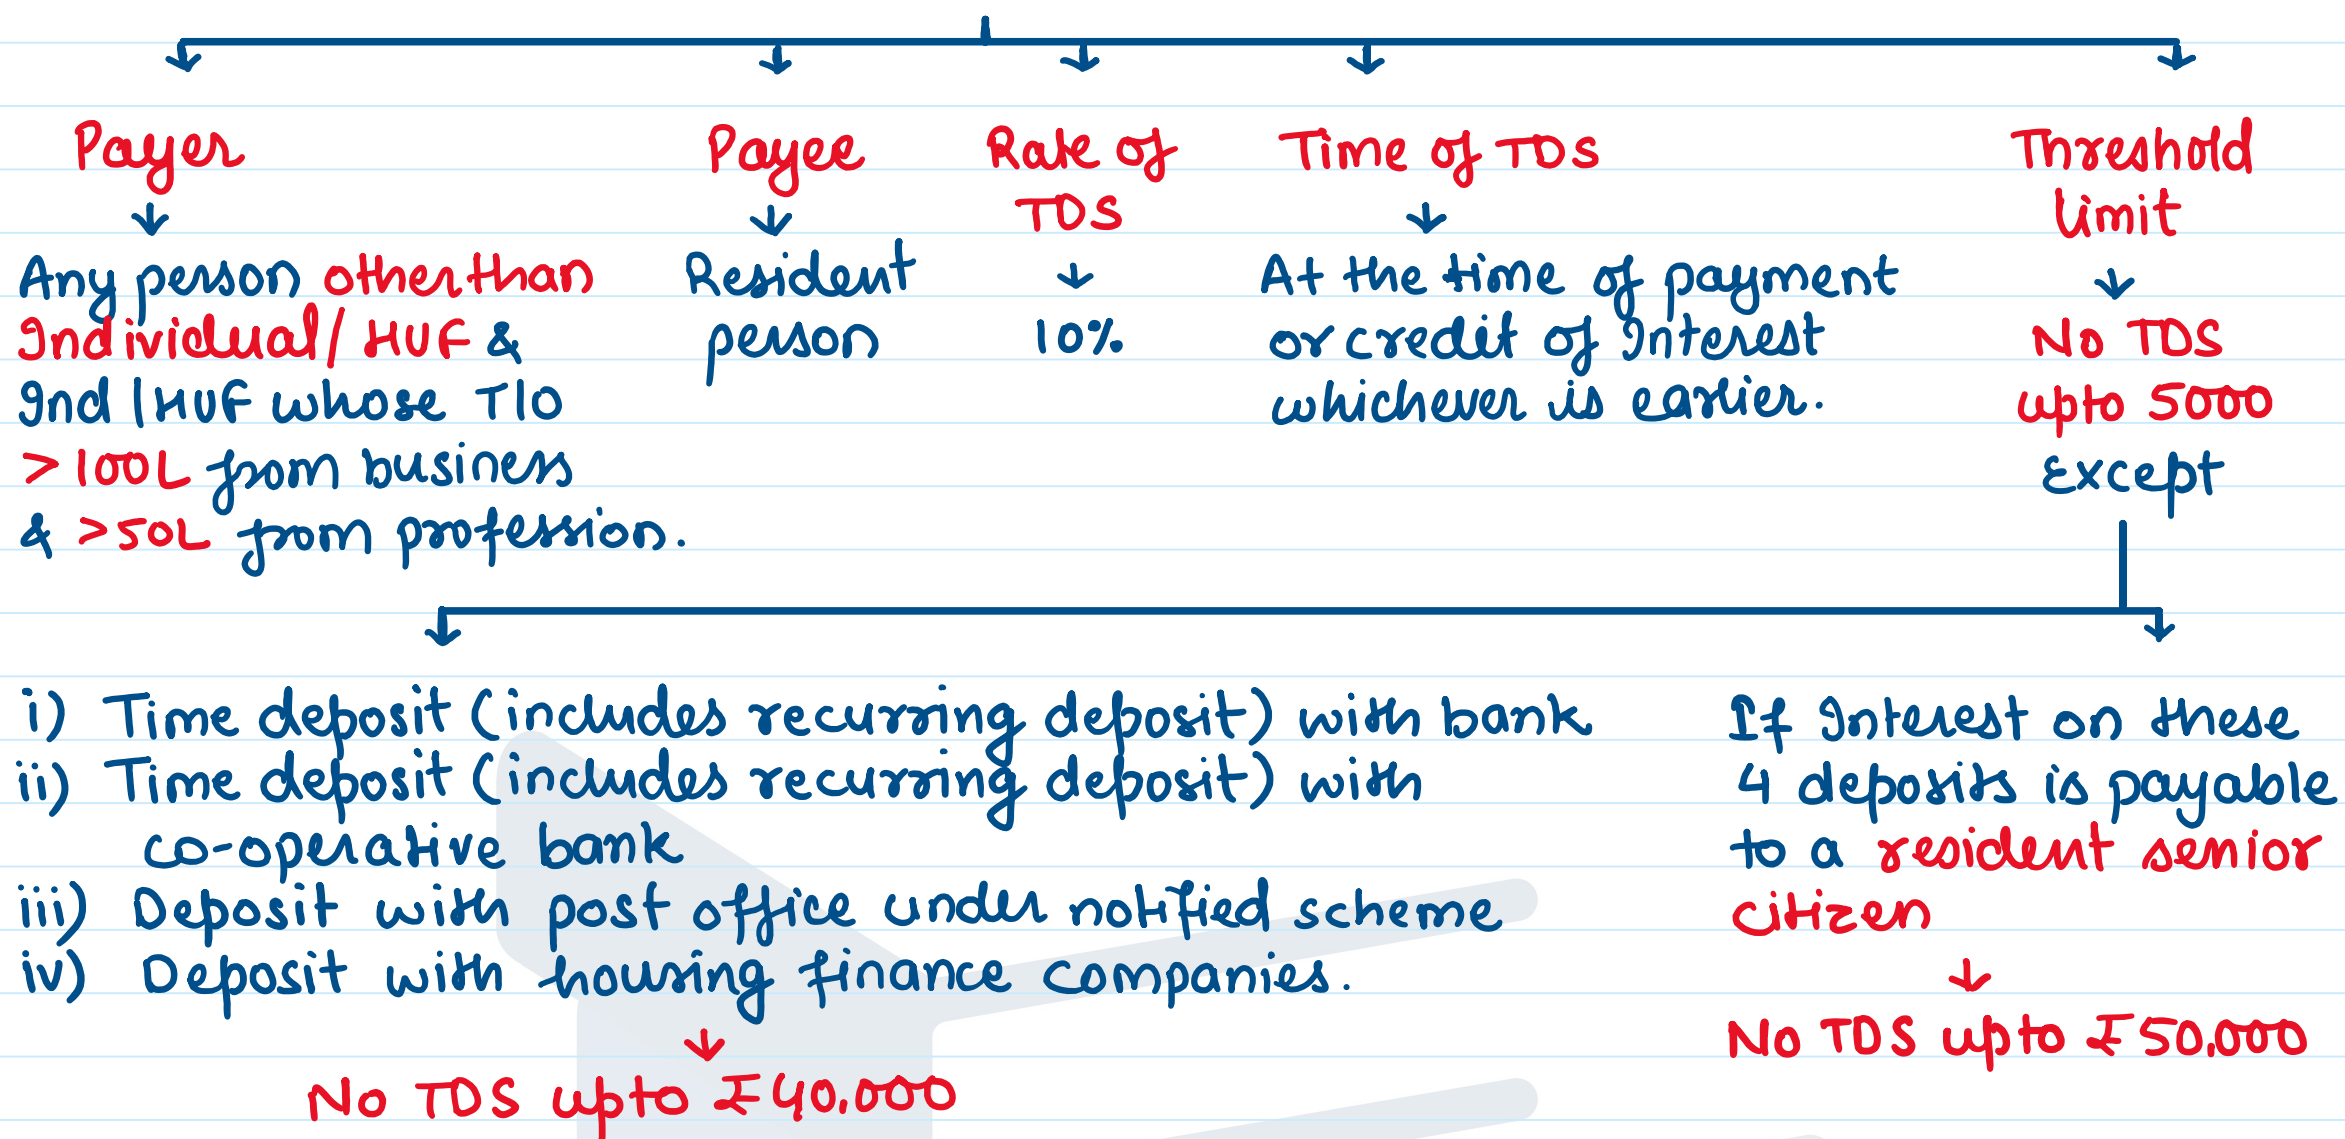 Payer
Payee
Rate of
TDS
Time of TDS
Threshold
limit
Any person other than
Individual/ HUF &
Ind/HUF whose T/O
>100L from business
& >50L from profession.
Resident
person
10%
At the time of payment
or credit of Interest
whichever is earlier.
No TDS
upto 5000
Except
i) Time deposit (includes recurring deposit) with bank
ii) Time deposit (includes recurring deposit) with
co-operative bank
iii) Deposit with post office under notified scheme
iv) Deposit with housing finance companies.
No TDS upto ₹40,000
If Interest on these
4 deposits is payable
to a resident senior
citizen
No TDS upto ₹50,000